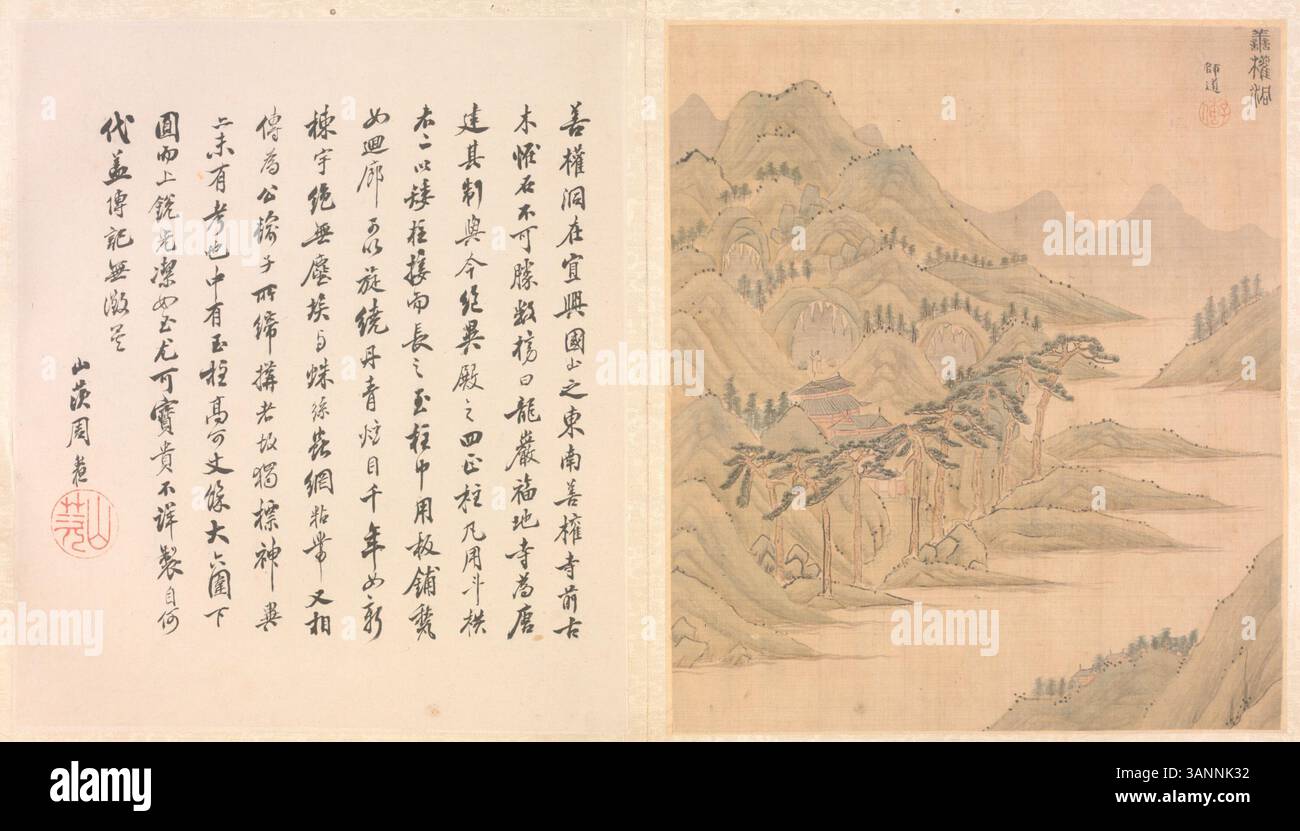 善權洞
師道
善權洞在宜興國山之東南善權寺前古
木惟石不可勝數榜曰龍巖福地寺為唐
建其制與今絕異殿之四正柱凡用斗栱
本二以矮柱接而長之至柱中用板鋪甃
如迴廊可以旋繞丹青炫目千年如新
棟宇絕無塵埃与蛛絲蟲網粘帶又相
傳為公輸子所締搆者故獨標神異
亦未有考也中有玉柱高可丈餘大六圍下
圓而上銳光潔如玉尤可寶貴不詳製自何
代盖傳記無徵矣
山茨周
山茨
alamy
Image ID: 3ANNK32
www.alamy.com